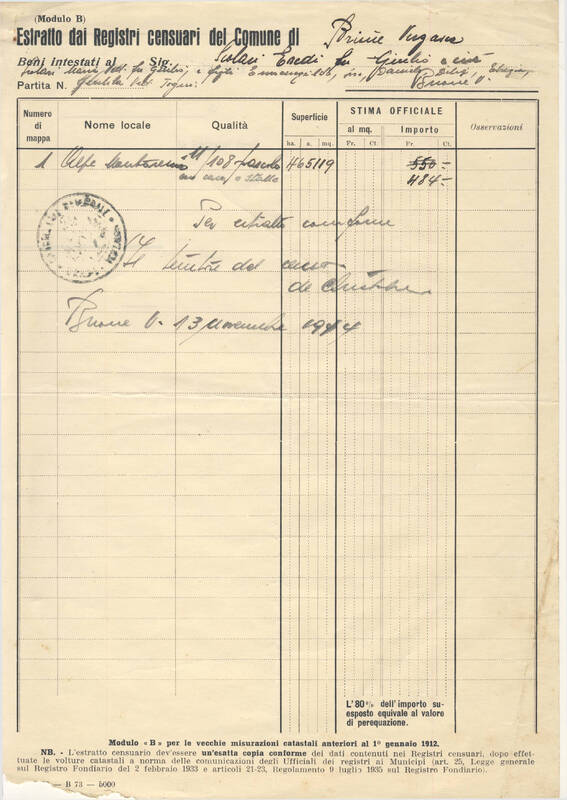 (Modulo B)
Estratto dai Registri censuari del Comune di Brione Verzasca
Beni intestati al Sig. Scolari Eredi fu Giulio e cioè
Scolari Maria Ved. fu Giulio, e figli Ermenegildo,
Partita N.
Numero di mappa
Nome locale
Qualità
Superficie
ha. a. mq.
STIMA OFFICIALE
al mq.
Importo
Fr. Ct. Fr. Ct.
Osservazioni
1 Alpe 11/108 Pascolo 465119 550.-
con cascine e stalle 484.-
Per estratto conforme
Il tenitore del censo
Brione V. 13 novembre 1944
L'80% dell'importo su-
esposto equivale al valore
di perequazione.
Modulo «B» per le vecchie misurazioni catastali anteriori al 1º gennaio 1912.
NB. - L'estratto censuario dev'essere un'esatta copia conforme dei dati contenuti nei Registri censuari, dopo effet-
tuate le volture catastali a norma delle comunicazioni degli Ufficiali dei registri ai Municipi (art. 25, Legge generale
sul Registro Fondiario del 2 febbraio 1933 e articoli 21-23, Regolamento 9 luglio 1935 sul Registro Fondiario).
— B 73 — 5000